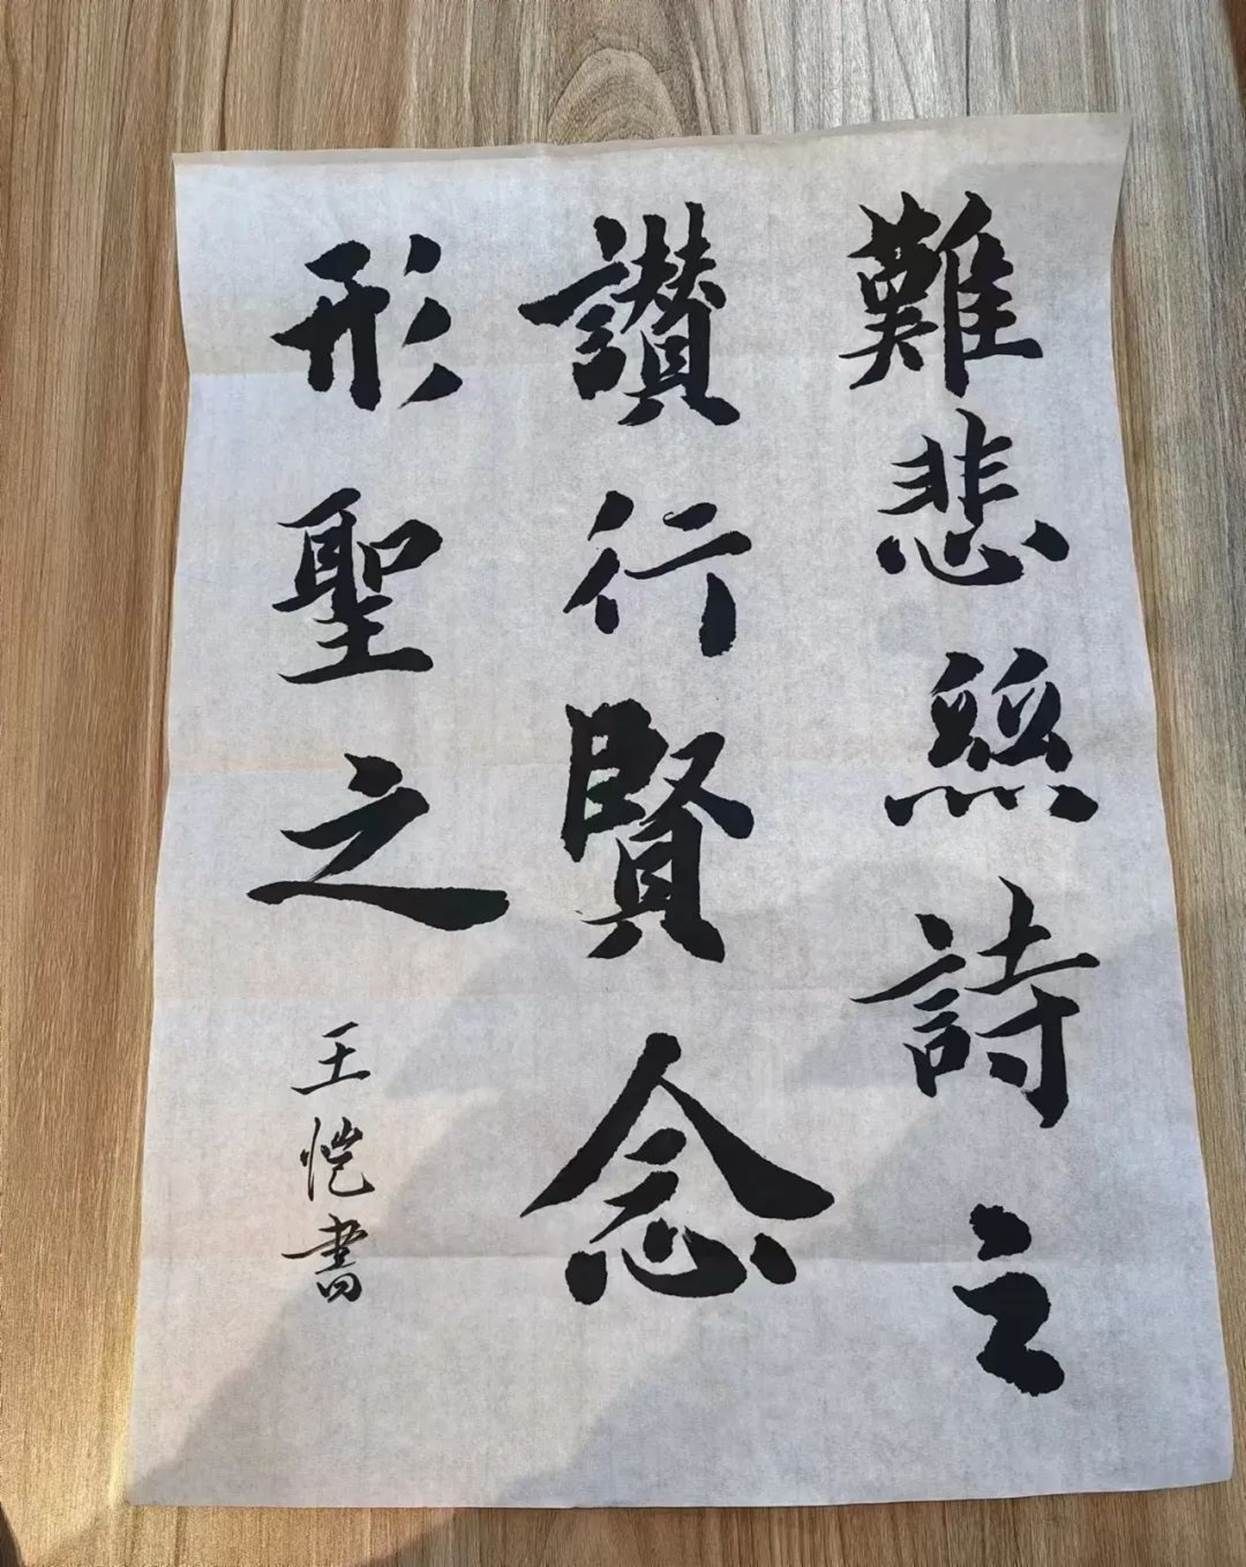 難悲絲詩之
讚行賢念
形聖之
王恺書